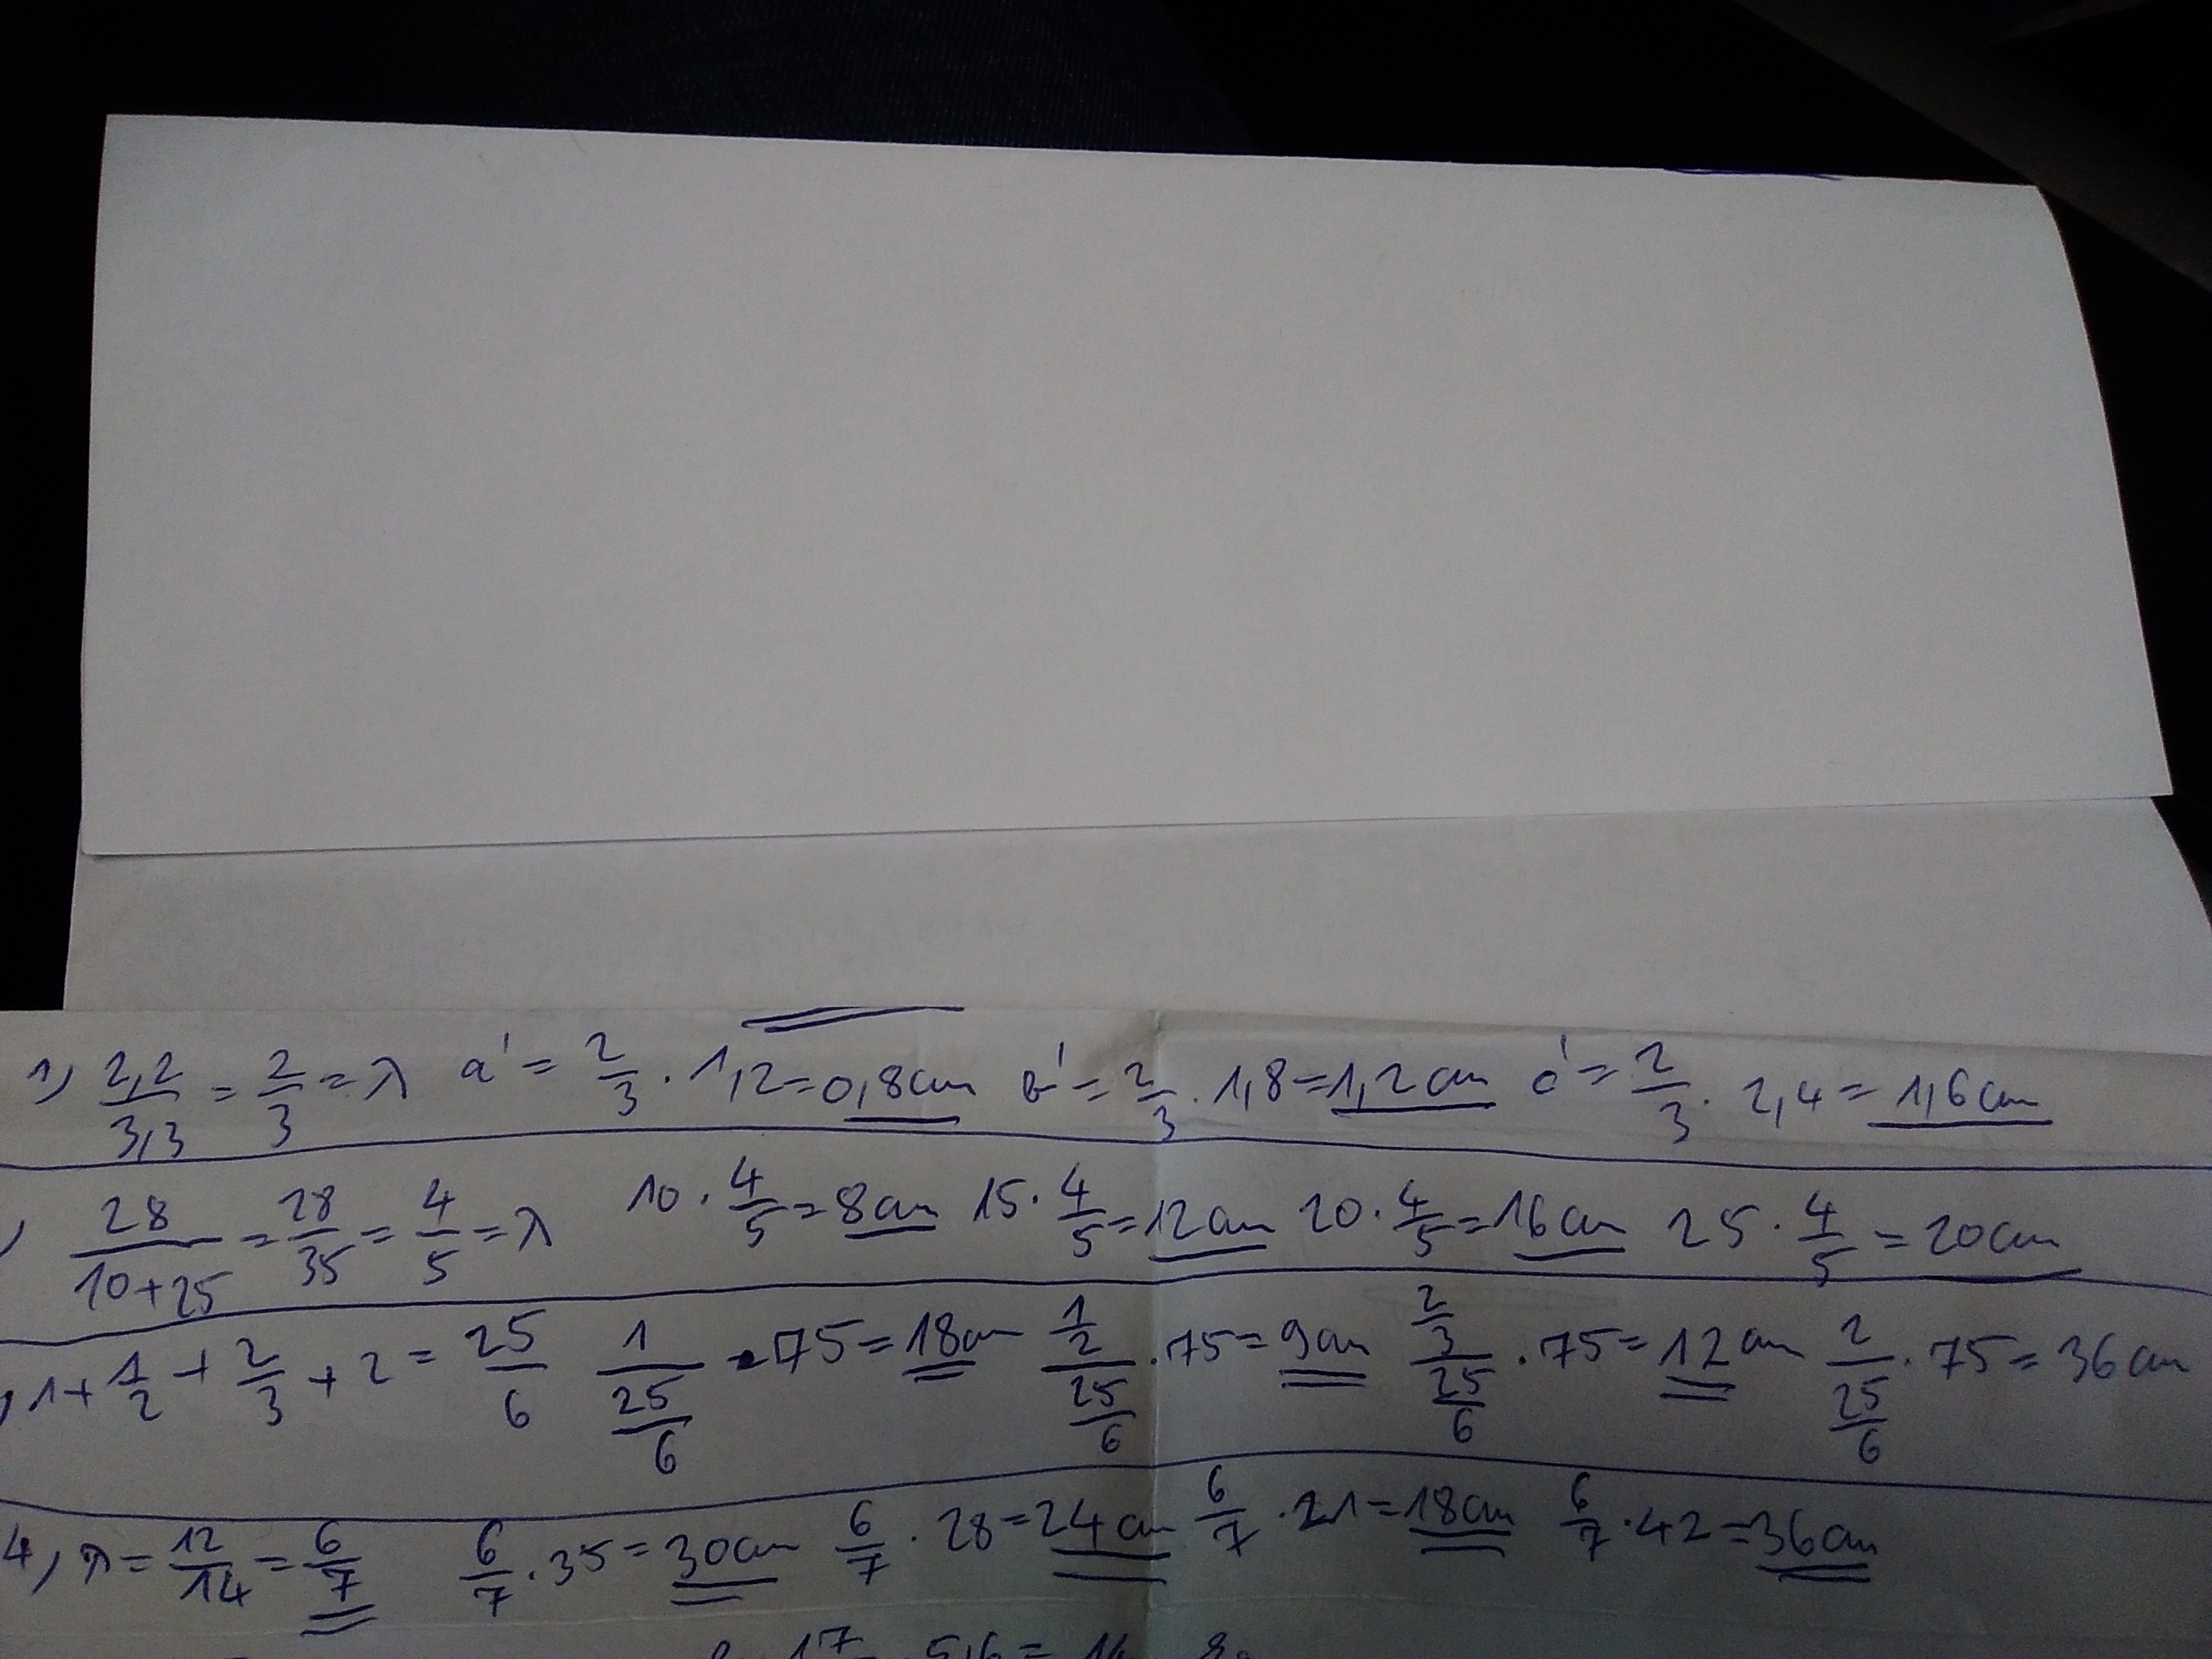 1) 2,2/3,3 = 2/3 = λ a' = 2/3 · 1,2 = 0,8cm b' = 2/3 · 1,8 = 1,2cm c' = 2/3 · 2,4 = 1,6cm
) 28/(10+25) = 28/35 = 4/5 = λ 10 · 4/5 = 8cm 15 · 4/5 = 12cm 20 · 4/5 = 16cm 25 · 4/5 = 20cm
) 1 + 1/2 + 2/3 + 2 = 25/6 1/(25/6) · 75 = 18cm (1/2)/(25/6) · 75 = 9cm (2/3)/(25/6) · 75 = 12cm 2/(25/6) · 75 = 36cm
4) λ = 12/14 = 6/7 6/7 · 35 = 30cm 6/7 · 28 = 24cm 6/7 · 21 = 18cm 6/7 · 42 = 36cm